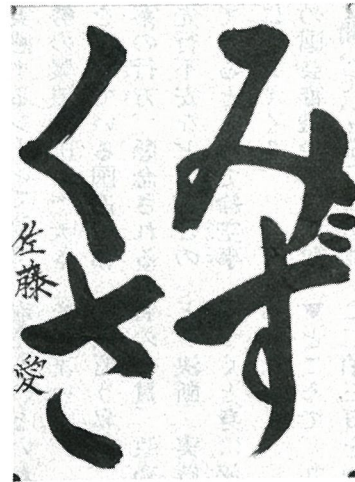 みず
くさ
佐藤愛